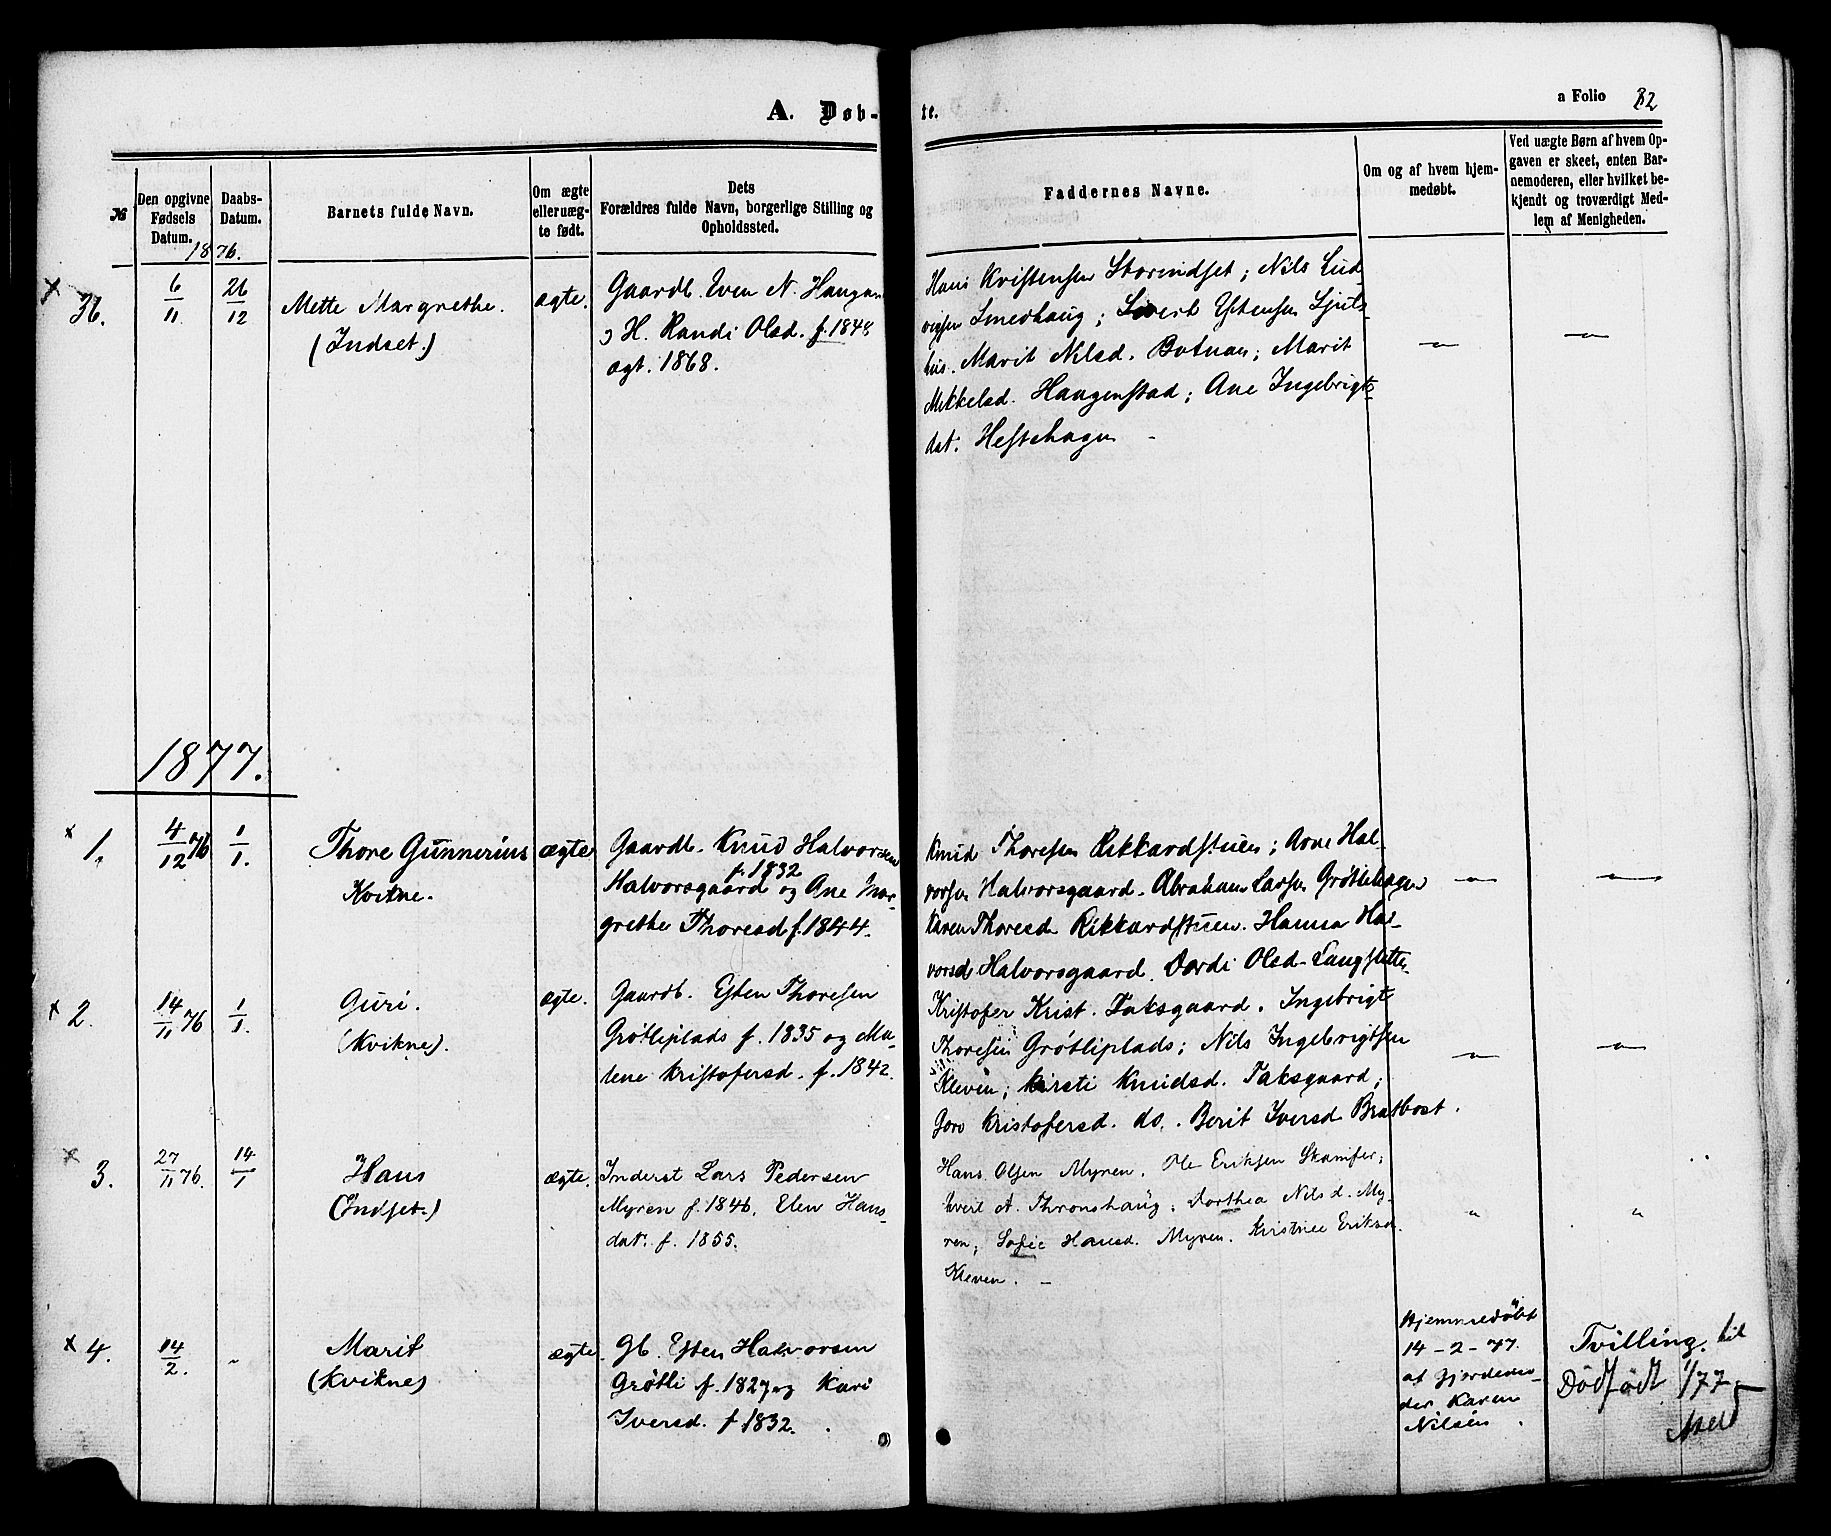 A. Døb-
te.
a Folio 32
№
Den opgivne
Fødsels
Datum.
Daabs-
Datum.
Barnets fulde Navn.
Om ægte
eller uæg-
te født.
Dets
Forældres fulde Navn, borgerlige Stilling og
Opholdssted.
Faddernes Navne.
Om og af hvem hjem-
medøbt.
Ved uægte Børn af hvem Op-
gaven er skeet, enten Bar-
nemoderen, eller hvilket be-
kjendt og troværdigt Med-
lem af Menigheden.
1876.
36.
6/11
26/12
Mette Margrethe.
(Indset.)
ægte.
Gaardb. Even N. Haugan
og H. Randi Olsd. f. 1848
ægt. 1868.
Hans Kristensen Storindset; Nils Lud-
vigsen Smedhaug; Sivert Estensen
Marit Nilsd. Botnan; Marit
Mikkelsd. Haugenstad; Ane Ingebrigts-
dat. Hestehagen
1877.
x 1.
4/12 76
1/1.
Thore Gunnerius
Kvikne.
ægte
Gaardb. Knud Halvorsen
f. 1832
Halvorsgaard og Ane Mar-
grethe Thoresd f. 1844.
Knud Thoresen Rikkardstuen; Arne Hal-
vorsen Halvorsgaard. Abraham Larsen Grøttehagen
Karen Thoresd Rikkardstuen. Hanna Hal-
vorsd Halvorsgaard. Dordi Olsd. Langslette.
x 2.
14/11 76
1/1.
Guri.
(Kvikne).
ægte.
Gaardb. Esten Thoresen
Grøtliplads f. 1835 og Ma-
lene Kristofersd. f. 1842.
Kristofer Krist. Taksgaard. Ingebrigt
Thoresen Grøtliplads; Nils Ingebrigtsen
Kleven; Kirsti Knudsd. Taksgaard;
Goro Kristofersd. do. Berit Iversd Bratbost.
x 3.
27/11 76.
14/1
Hans
(Indset.)
ægte.
Inderst Lars Pedersen
Myren f. 1846. Elen Hans-
dat. f. 1855.
Hans Olsen Myren. Ole Eriksen Skamfer;
A. Thronshaug; Dorthea Nilsd. My-
ren; Sofie Hansd. Myren. Kristine Eriksd.
Kleven.
x 4.
14/2.
Marit
(Kvikne)
ægte.
Gb. Esten Halvorsen
Grøtli f. 1827 og Kari
Iversd. f. 1832.
Hjemmedøbt
14-2-77.
af Gjordemo-
der Karen
Nilsen.
Tvilling til
Dødfødt 1/77